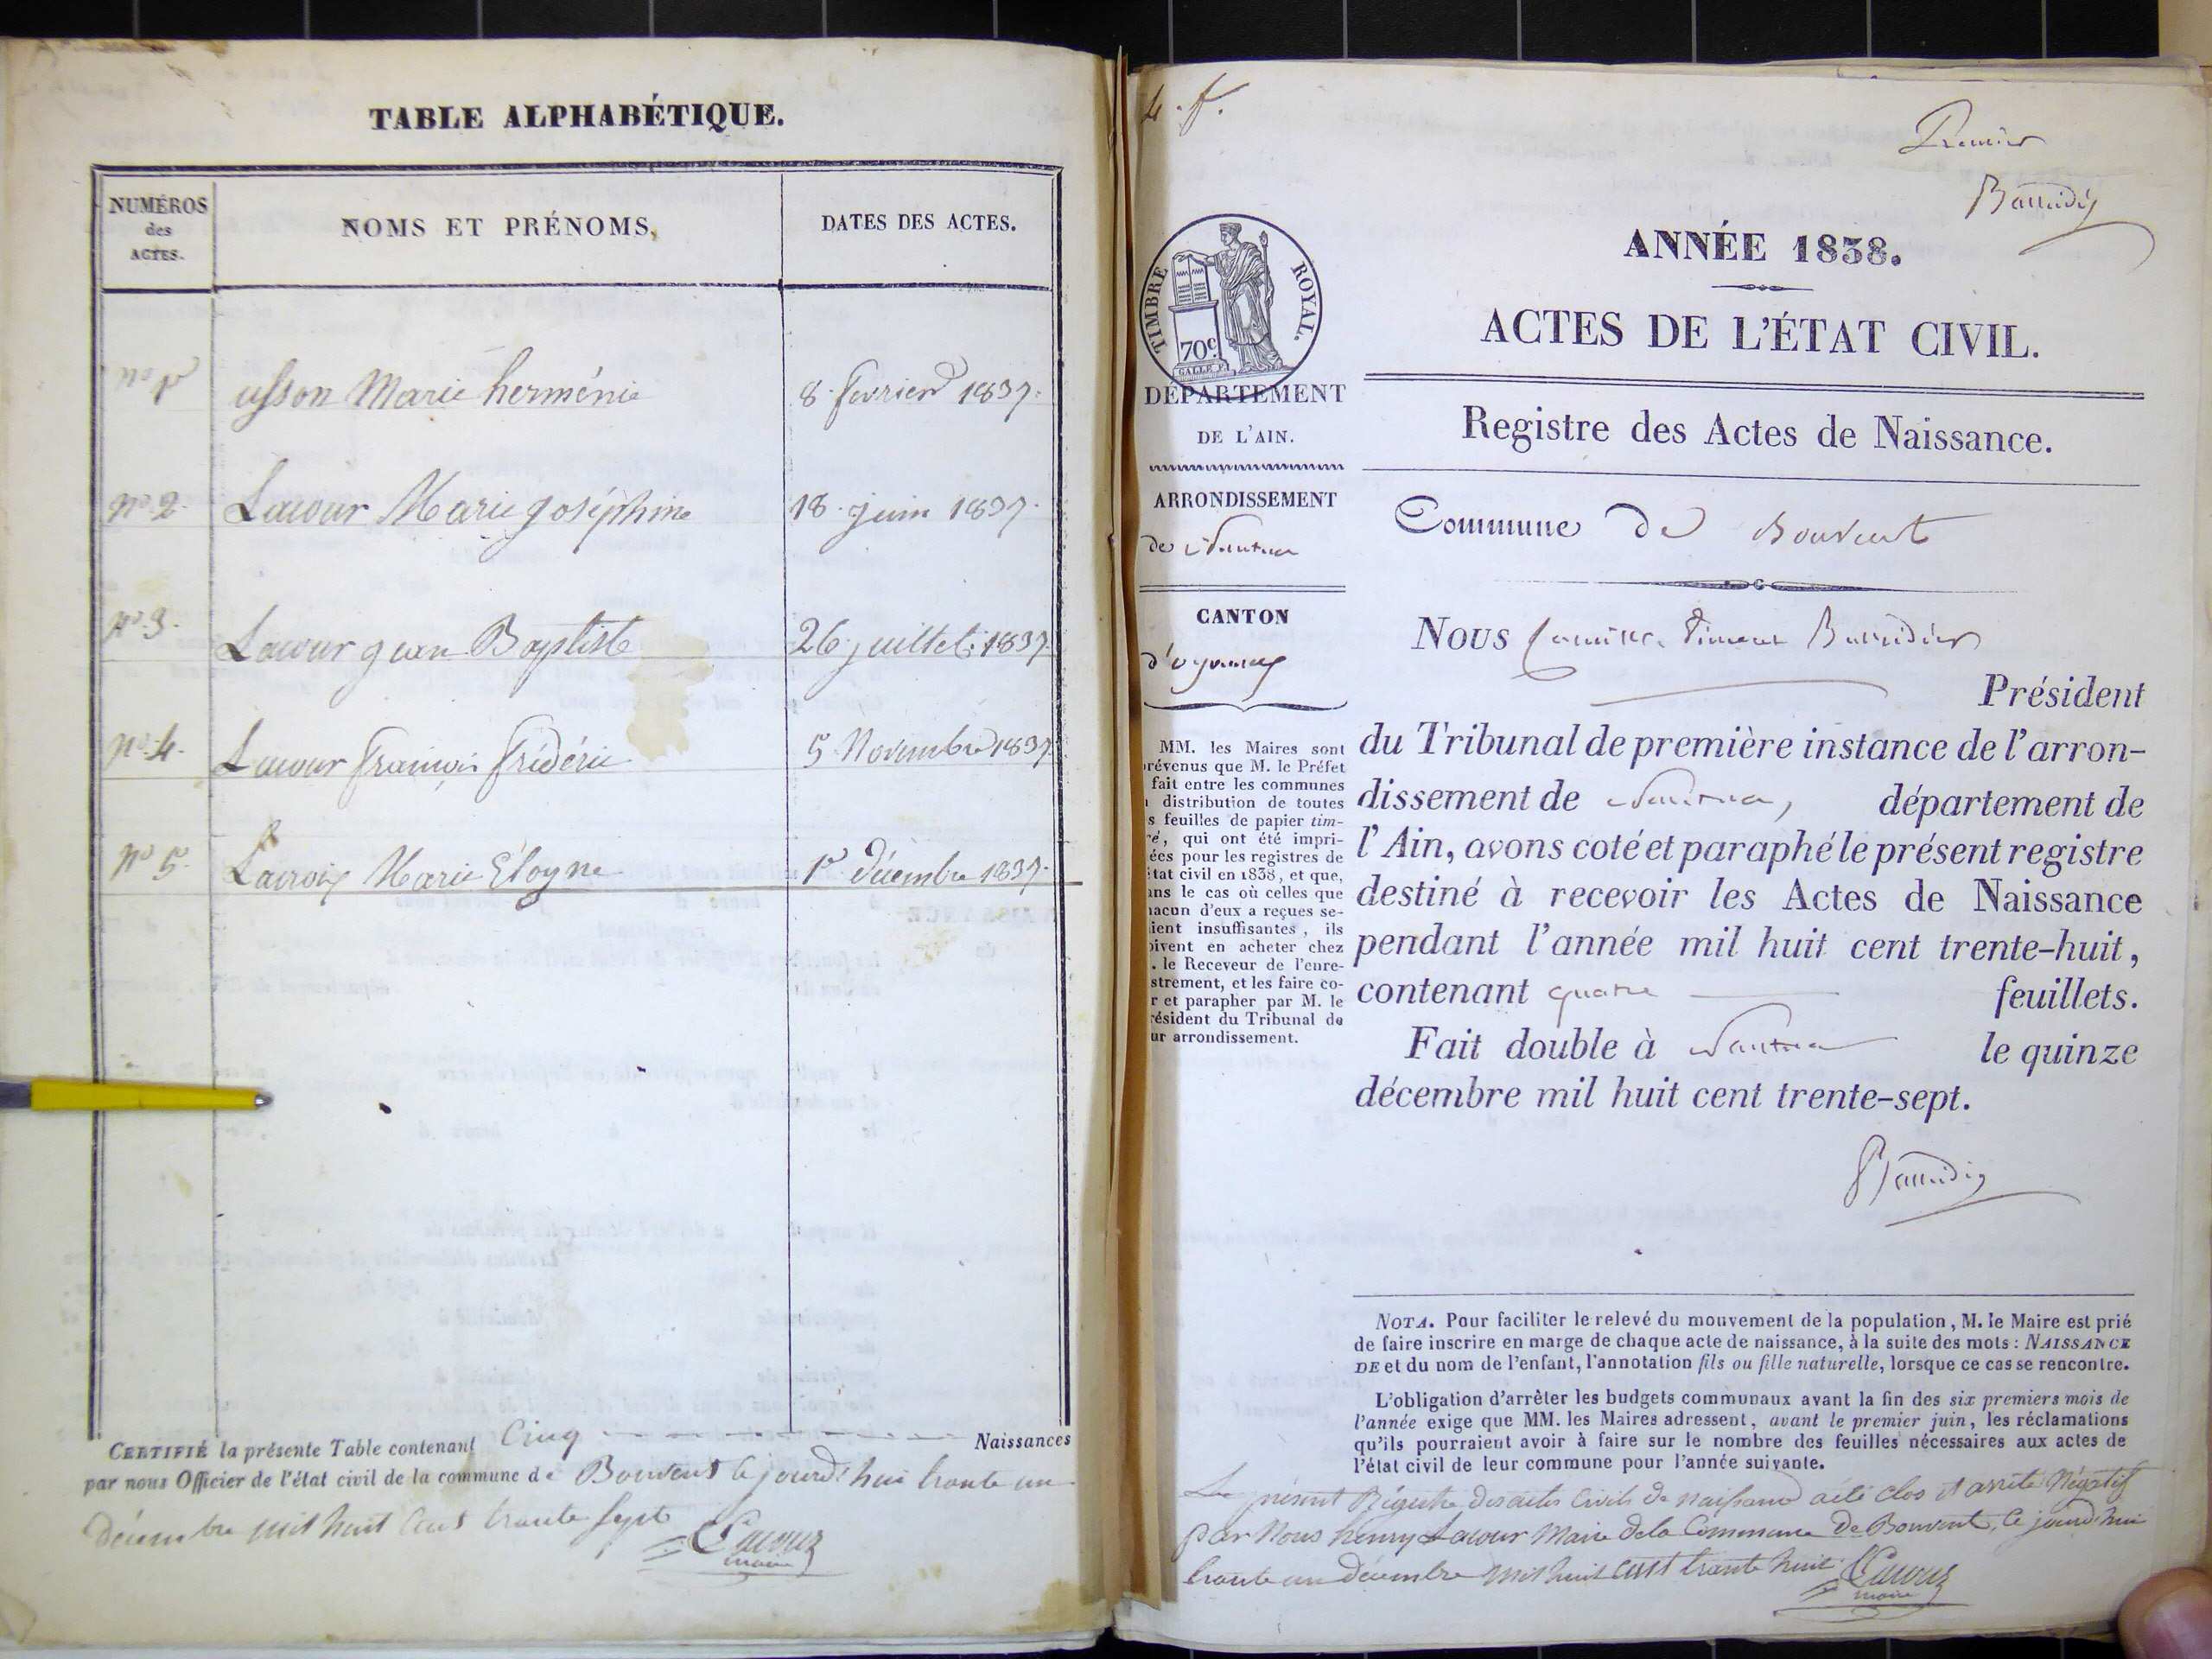 TABLE ALPHABÉTIQUE.
NUMÉROS
des
ACTES.
NOMS ET PRÉNOMS,
DATES DES ACTES.
nº 1er usson Marie herménie 8 fevrier 1837.
nº 2. Lacour Marie joséphine 18 juin 1837.
nº 3. Lacour jean Baptiste 26 juillet 1837.
nº 4. Lacour françois frédéric 5 Novembre 1837.
nº 5. Lacroix Marie Eloyne 1er décembre 1837.
CERTIFIÉ la présente Table contenant Cinq Naissances
par nous Officier de l'état civil de la commune de Bouvent le jourd'hui trante un
Décembre mil huit Cent trante sept
Lacour
maire
Premier
ANNÉE 1838.
ACTES DE L'ÉTAT CIVIL.
Registre des Actes de Naissance.
Commune de Bouvent
TIMBRE ROYAL.
70c.
GALLE F.
DÉPARTEMENT
DE L'AIN.
ARRONDISSEMENT
de Nantua
CANTON
d'oyonnax
MM. les Maires sont
révenus que M. le Préfet
fait entre les communes
distribution de toutes
s feuilles de papier tim-
ré, qui ont été impri-
ées pour les registres de
état civil en 1838, et que,
ans le cas où celles que
hacun d'eux a reçues se-
aient insuffisantes, ils
oivent en acheter chez
. le Receveur de l'enre-
strement, et les faire co-
r et parapher par M. le
résident du Tribunal de
ur arrondissement.
Nous
Président
du Tribunal de première instance de l'arron-
dissement de Nantua, département de
l'Ain, avons coté et paraphé le présent registre
destiné à recevoir les Actes de Naissance
pendant l'année mil huit cent trente-huit,
contenant quatre feuillets.
Fait double à Nantua le quinze
décembre mil huit cent trente-sept.
NOTA. Pour faciliter le relevé du mouvement de la population, M. le Maire est prié
de faire inscrire en marge de chaque acte de naissance, à la suite des mots : NAISSANCE
DE et du nom de l'enfant, l'annotation fils ou fille naturelle, lorsque ce cas se rencontre.
L'obligation d'arrêter les budgets communaux avant la fin des six premiers mois de
l'année exige que MM. les Maires adressent, avant le premier juin, les réclamations
qu'ils pourraient avoir à faire sur le nombre des feuilles nécessaires aux actes de
l'état civil de leur commune pour l'année suivante.
Le présent Régistre des actes Civils de naissance a été clos et arrêté Négatif
par Nous henry Lacour Maire de la Commune De Bouvent, le jourd'hui
trante un décembre mil huit cent trante huit. Lacour
maire